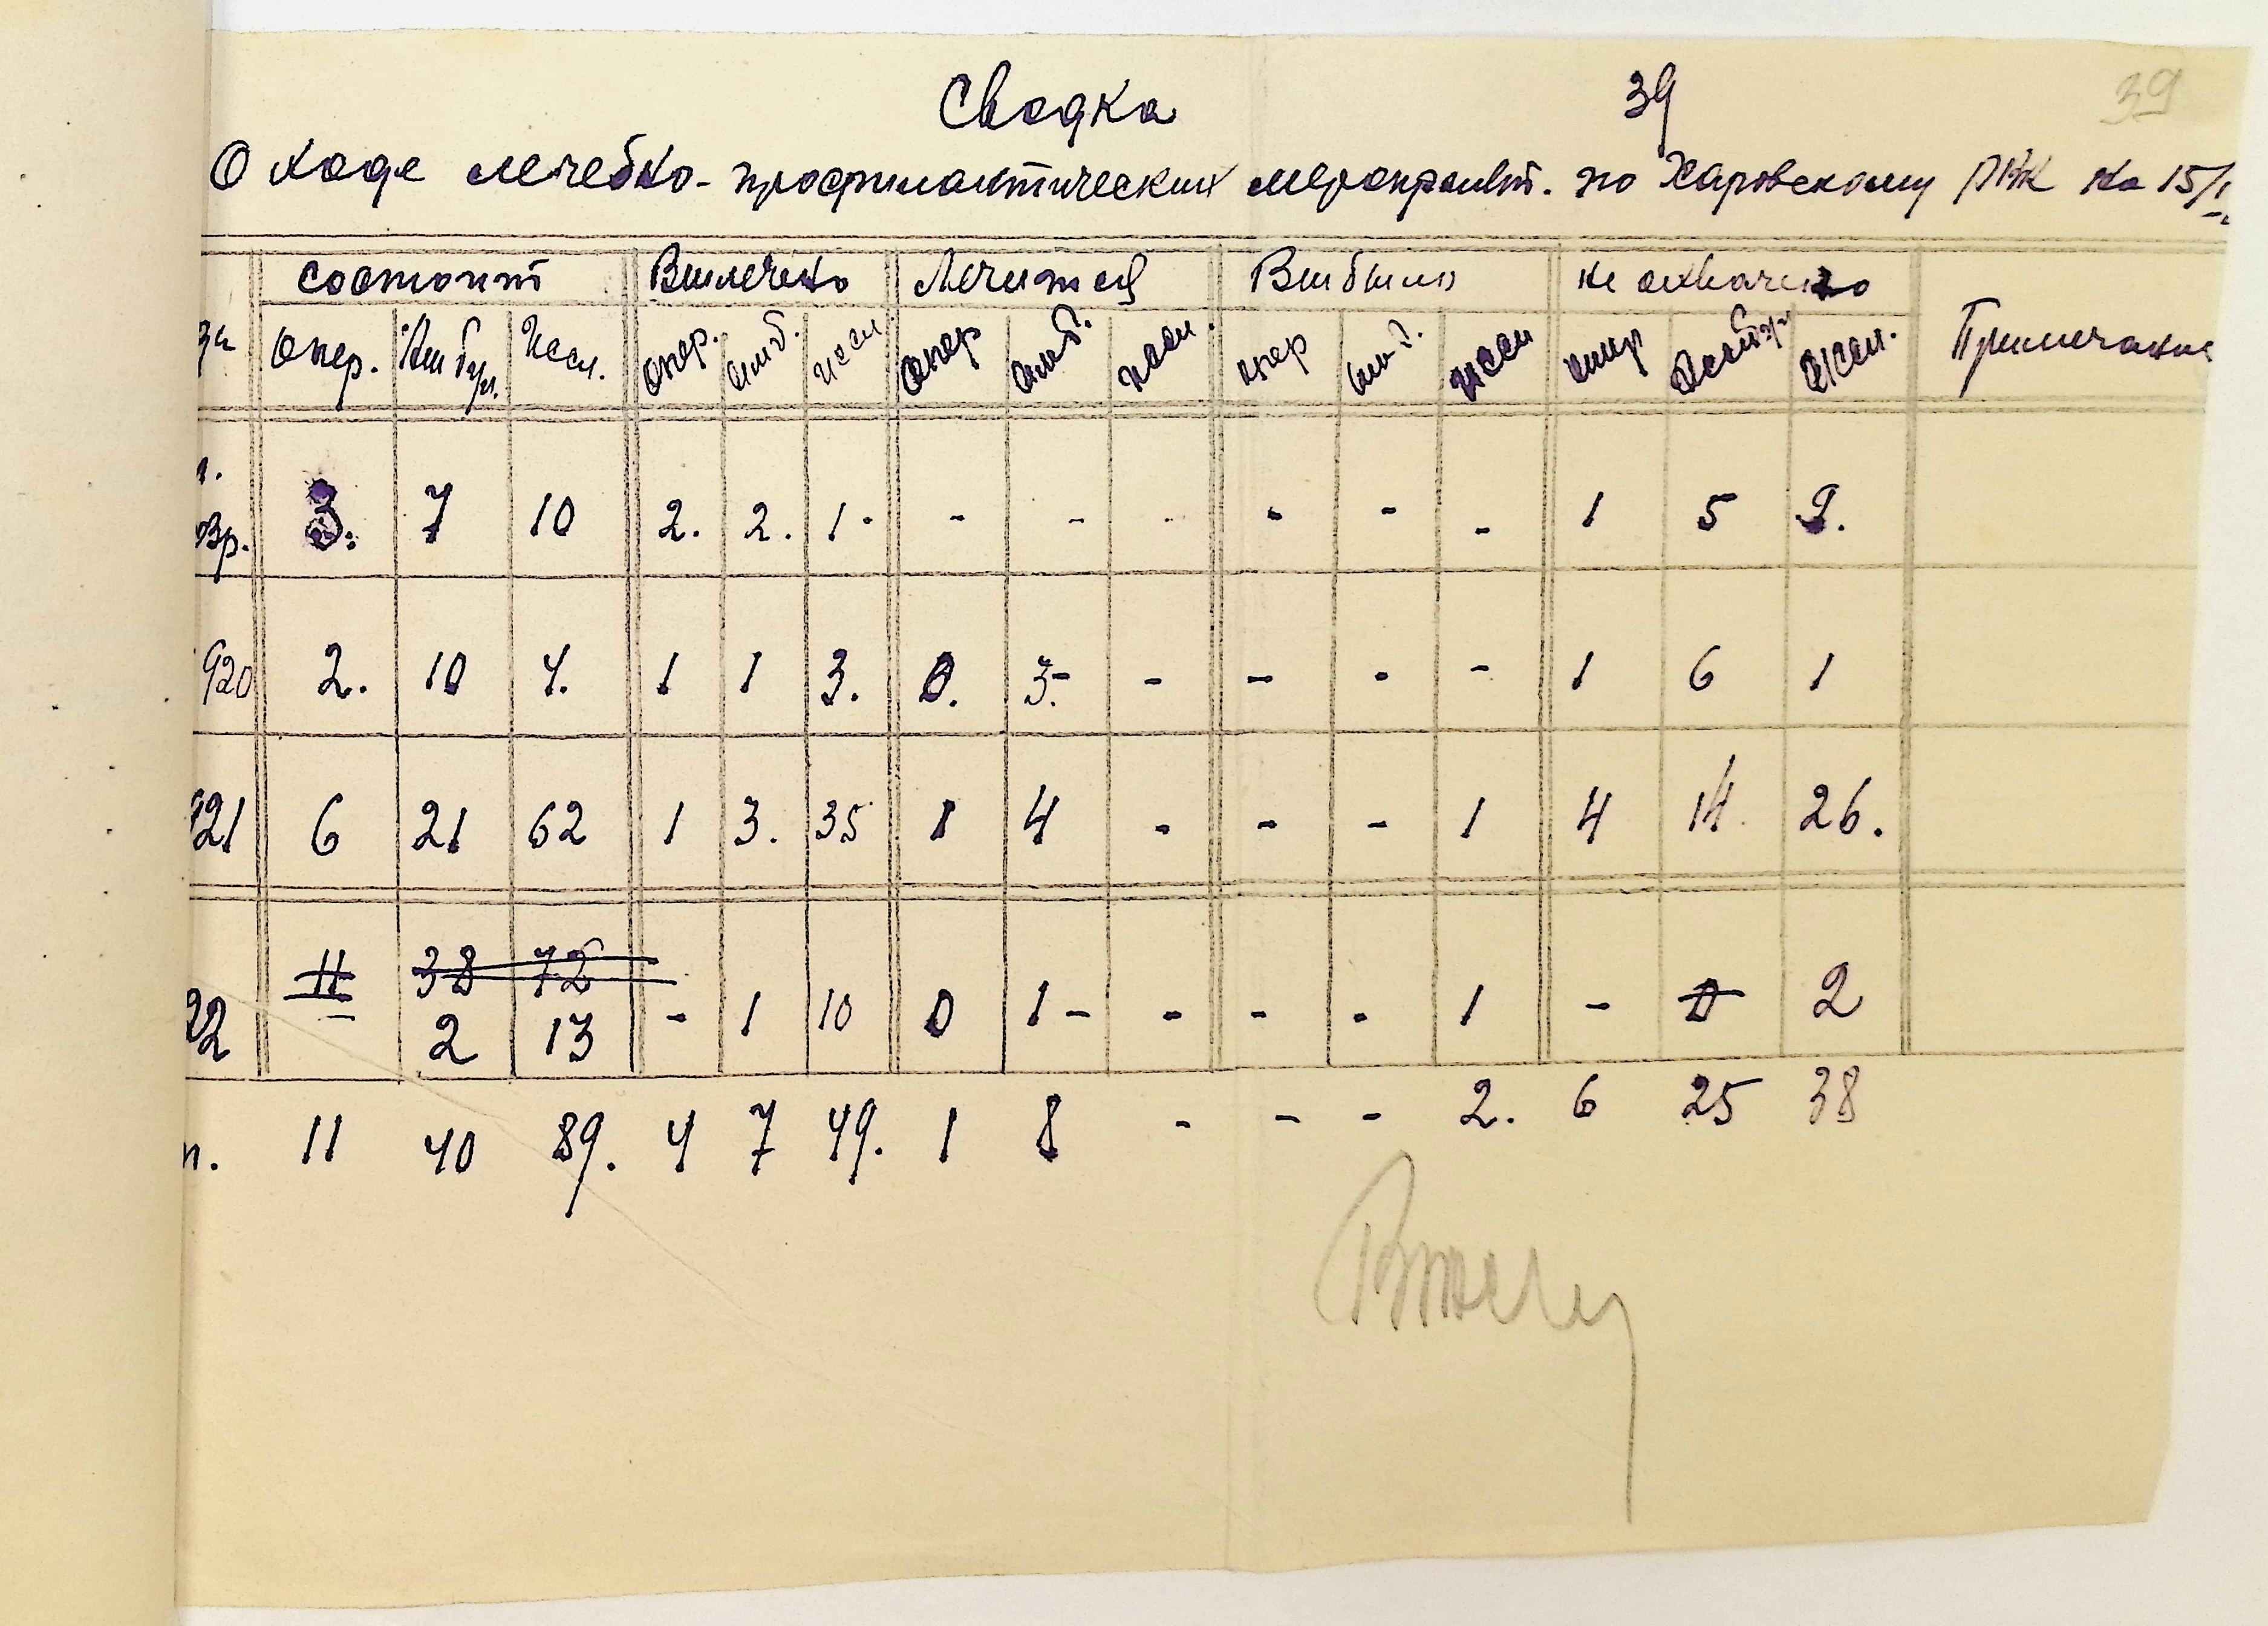 Сводка 39 39
О ходе лечебно-профилактических мероприят. по Харовскому РВК на 15/I
состоит Вылечено Лечится Выбыло не охвачено Примечание
за Опер. Амбул. Иссл. опер. амб. иссл опер амб. иссл. опер амб. иссл опер амбул иссл.
л.
озр. 3. 7 10 2. 2. 1. - - - - - - 1 5 9.
920 2. 10 4. 1 1 3. 0. 3.- - - - - 1 6 1
921 6 21 62 1 3. 35 1 4 - - - 1 4 14. 26.
11 38 72
22 - 2 13 - 1 10 0 1- - - - 1 - 0 2
п. 11 40 89. 4 7 49. 1 8 - - - 2. 6 25 38